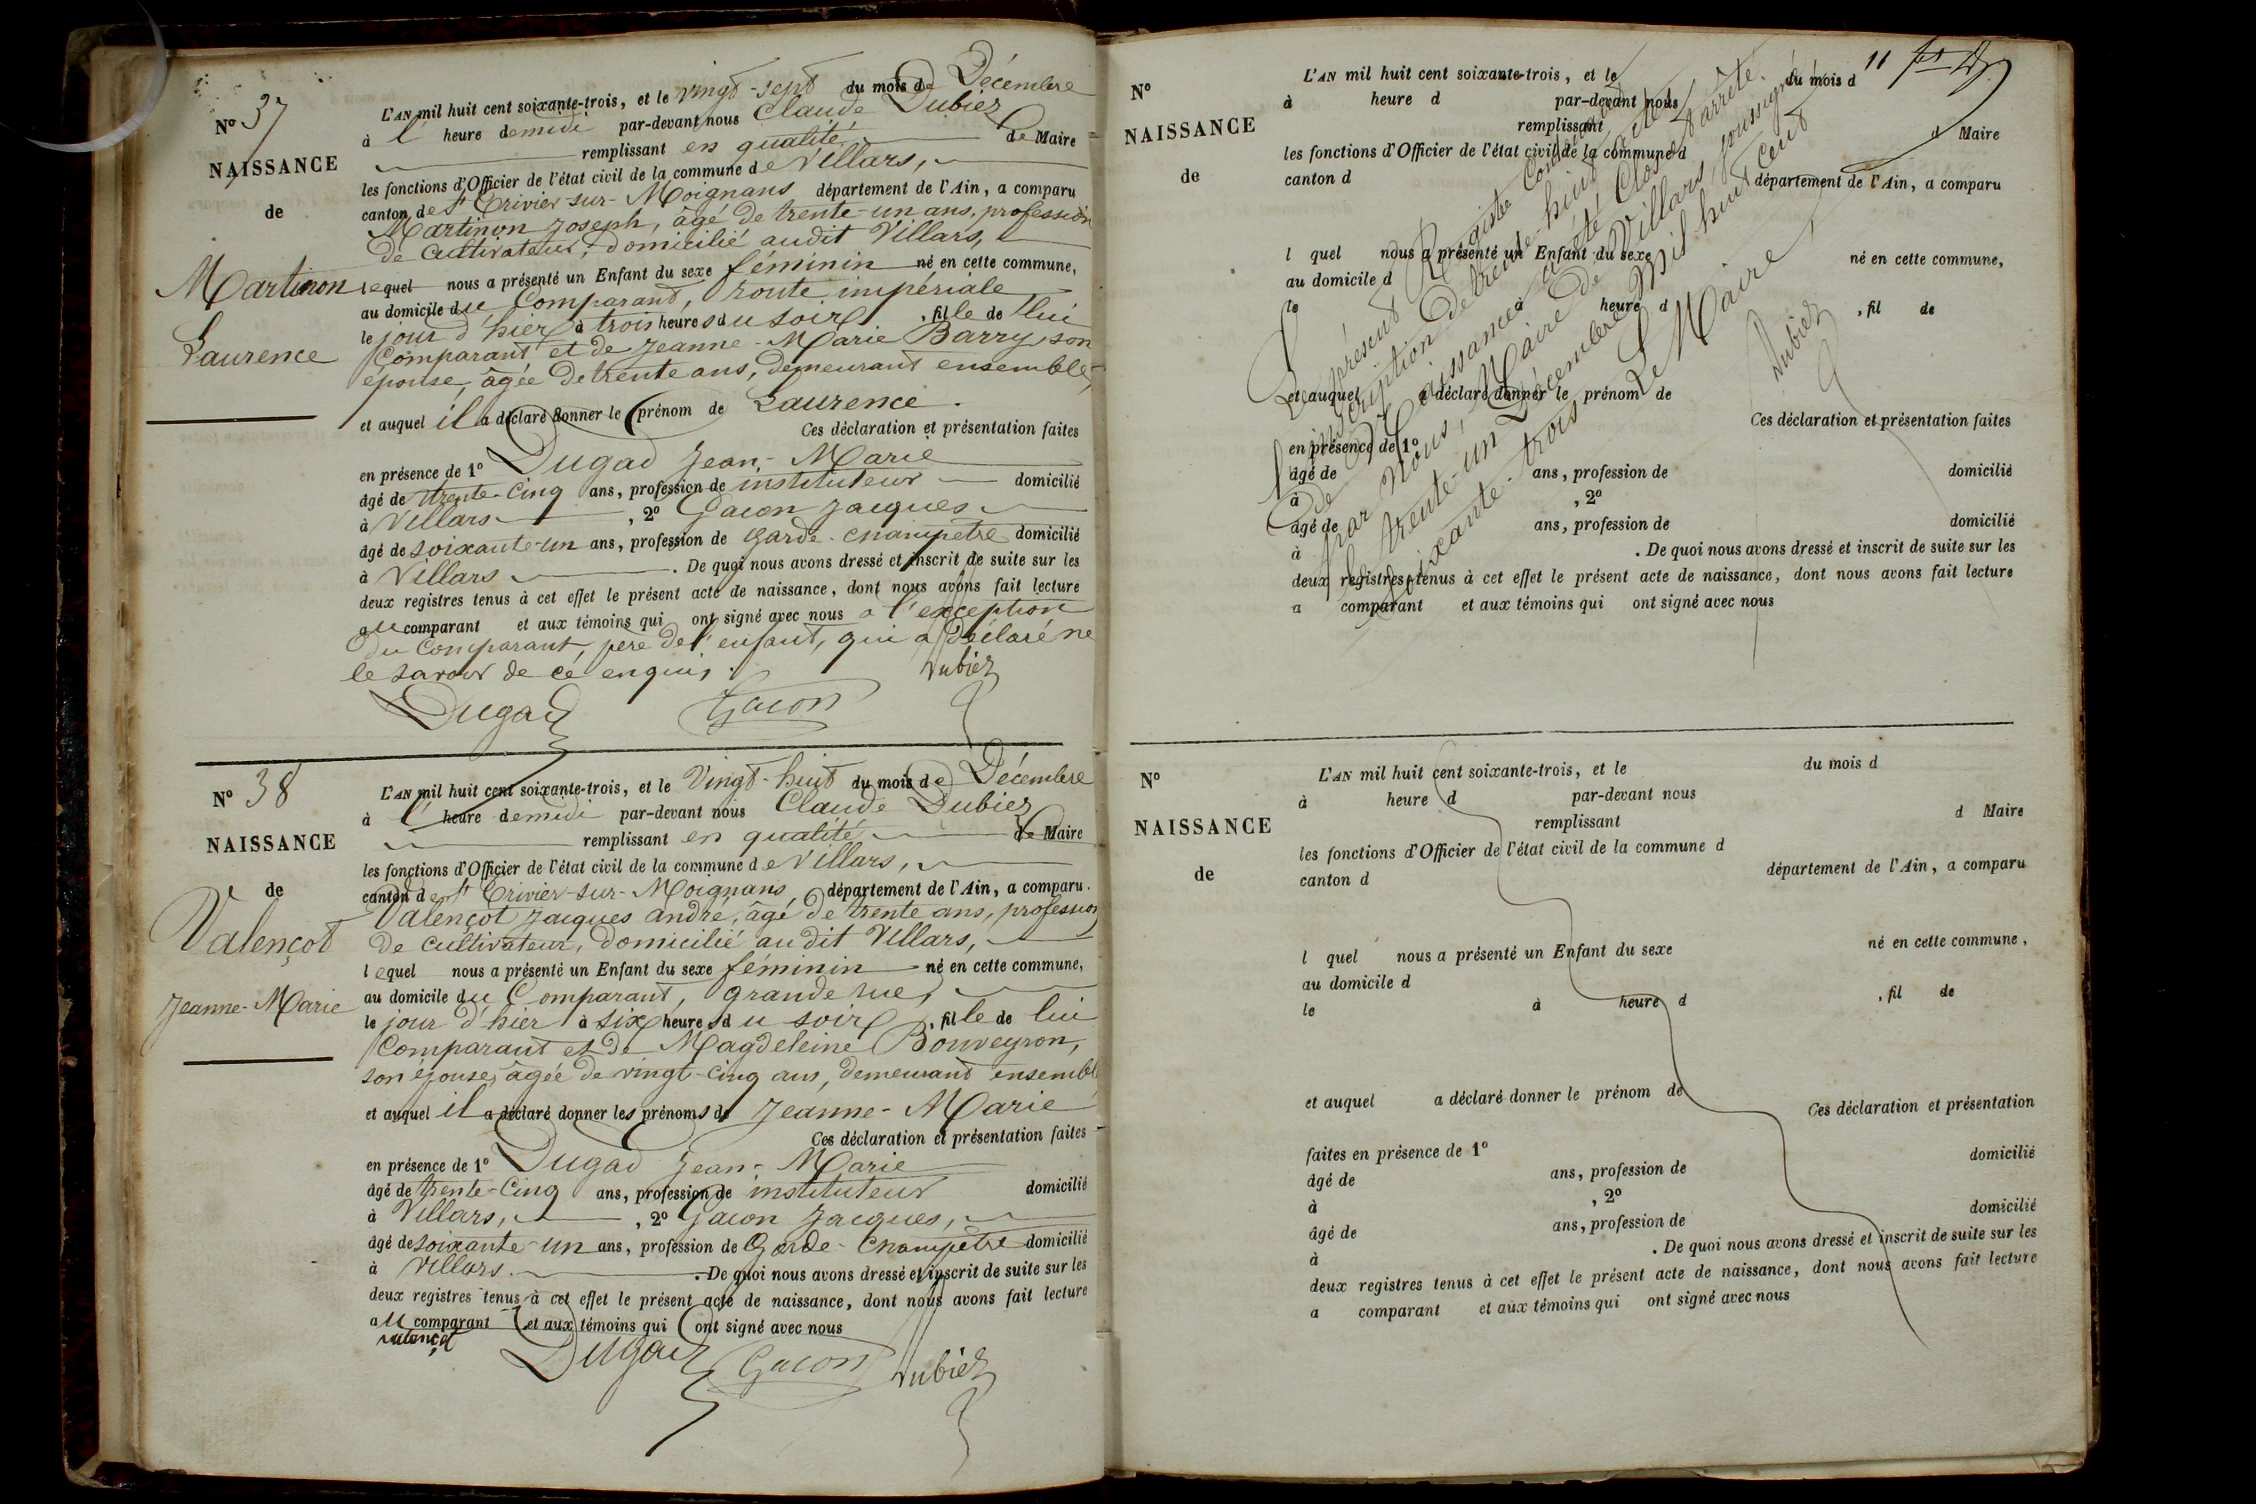 N° 37
NAISSANCE
de
Martinon
Laurence
L'AN mil huit cent soixante-trois, et le vingt-sept du mois de Décembre
à l' heure de midi par-devant nous Claude Dubiez
remplissant en qualité de Maire
les fonctions d'Officier de l'état civil de la commune de Villars,
canton de St Trivier-sur-Moignans département de l'Ain, a comparu
Martinon Joseph, âgé de trente-un ans, profession
de cultivateur, domicilié audit Villars,
lequel nous a présenté un Enfant du sexe féminin né en cette commune,
au domicile du Comparant, route impériale
le jour d'hier à trois heures du soir, fille de lui
Comparant et de Jeanne-Marie Barry, son
épouse, âgée de trente ans, demeurant ensemble,
et auquel il a déclaré donner le prénom de Laurence.
Ces déclaration et présentation faites
en présence de 1° Dugad Jean-Marie
âgé de trente-cinq ans, profession de instituteur domicilié
à Villars, 2° Gacon Jacques
âgé de soixante-un ans, profession de garde-champetre domicilié
à Villars. De quoi nous avons dressé et inscrit de suite sur les
deux registres tenus à cet effet le présent acte de naissance, dont nous avons fait lecture
au comparant et aux témoins qui ont signé avec nous a l'exception
du Comparant, père de l'enfant, qui a déclaré ne
le savoir de ce enquis.
Dubiez
Dugad Gacon
N° 38
NAISSANCE
de
Valençot
Jeanne-Marie
L'AN mil huit cent soixante-trois, et le Vingt-huit du mois de Décembre
à l' heure de midi par-devant nous Claude Dubiez
remplissant en qualité de Maire
les fonctions d'Officier de l'état civil de la commune de Villars,
canton de St Trivier-sur-Moignans, département de l'Ain, a comparu.
Valençot Jacques andré, âgé de trente ans, profession
de cultivateur, domicilié audit Villars,
lequel nous a présenté un Enfant du sexe féminin né en cette commune,
au domicile du Comparant, grande rue,
le jour d'hier à six heures du soir, fille de lui
Comparant et de Magdeleine Bouveyron,
son épouse, âgée de vingt-cinq ans, demeurant ensemble
et auquel il a déclaré donner les prénoms de Jeanne-Marie
Ces déclaration et présentation faites
en présence de 1° Dugad Jean-Marie
âgé de trente-cinq ans, profession de instituteur domicilié
à Villars, 2° Gacon Jacques,
âgé de soixante-un ans, profession de Garde-Champetre domicilié
à Villars. De quoi nous avons dressé et inscrit de suite sur les
deux registres tenus à cet effet le présent acte de naissance, dont nous avons fait lecture
au comparant et aux témoins qui ont signé avec nous
valençot
Dugad Gacon Dubiez
11
N°
NAISSANCE
de
L'AN mil huit cent soixante-trois, et le du mois d
à heure d par-devant nous
remplissant d Maire
les fonctions d'Officier de l'état civil de la commune d
canton d département de l'Ain, a comparu
l quel nous a présenté un Enfant du sexe né en cette commune,
au domicile d
le à heure d , fil de
et auquel a déclaré donner le prénom de
Ces déclaration et présentation faites
en présence de 1°
âgé de ans, profession de domicilié
à , 2°
âgé de ans, profession de domicilié
à . De quoi nous avons dressé et inscrit de suite sur les
deux registres tenus à cet effet le présent acte de naissance, dont nous avons fait lecture
a comparant et aux témoins qui ont signé avec nous
Le présent Registre
l'inscription de trente-huit actes
de Naissances a été Clos et arrêté
par nous, Maire de Villars, soussigné
le trente-un Décembre Mil huit cent
soixante-trois.
Le Maire,
Dubiez
N°
NAISSANCE
de
L'AN mil huit cent soixante-trois, et le du mois d
à heure d par-devant nous
remplissant d Maire
les fonctions d'Officier de l'état civil de la commune d
canton d département de l'Ain, a comparu
l quel nous a présenté un Enfant du sexe né en cette commune,
au domicile d
le à heure d , fil de
et auquel a déclaré donner le prénom de
Ces déclaration et présentation
faites en présence de 1° domicilié
âgé de ans, profession de
à , 2° domicilié
âgé de ans, profession de
à . De quoi nous avons dressé et inscrit de suite sur les
deux registres tenus à cet effet le présent acte de naissance, dont nous avons fait lecture
a comparant et aux témoins qui ont signé avec nous